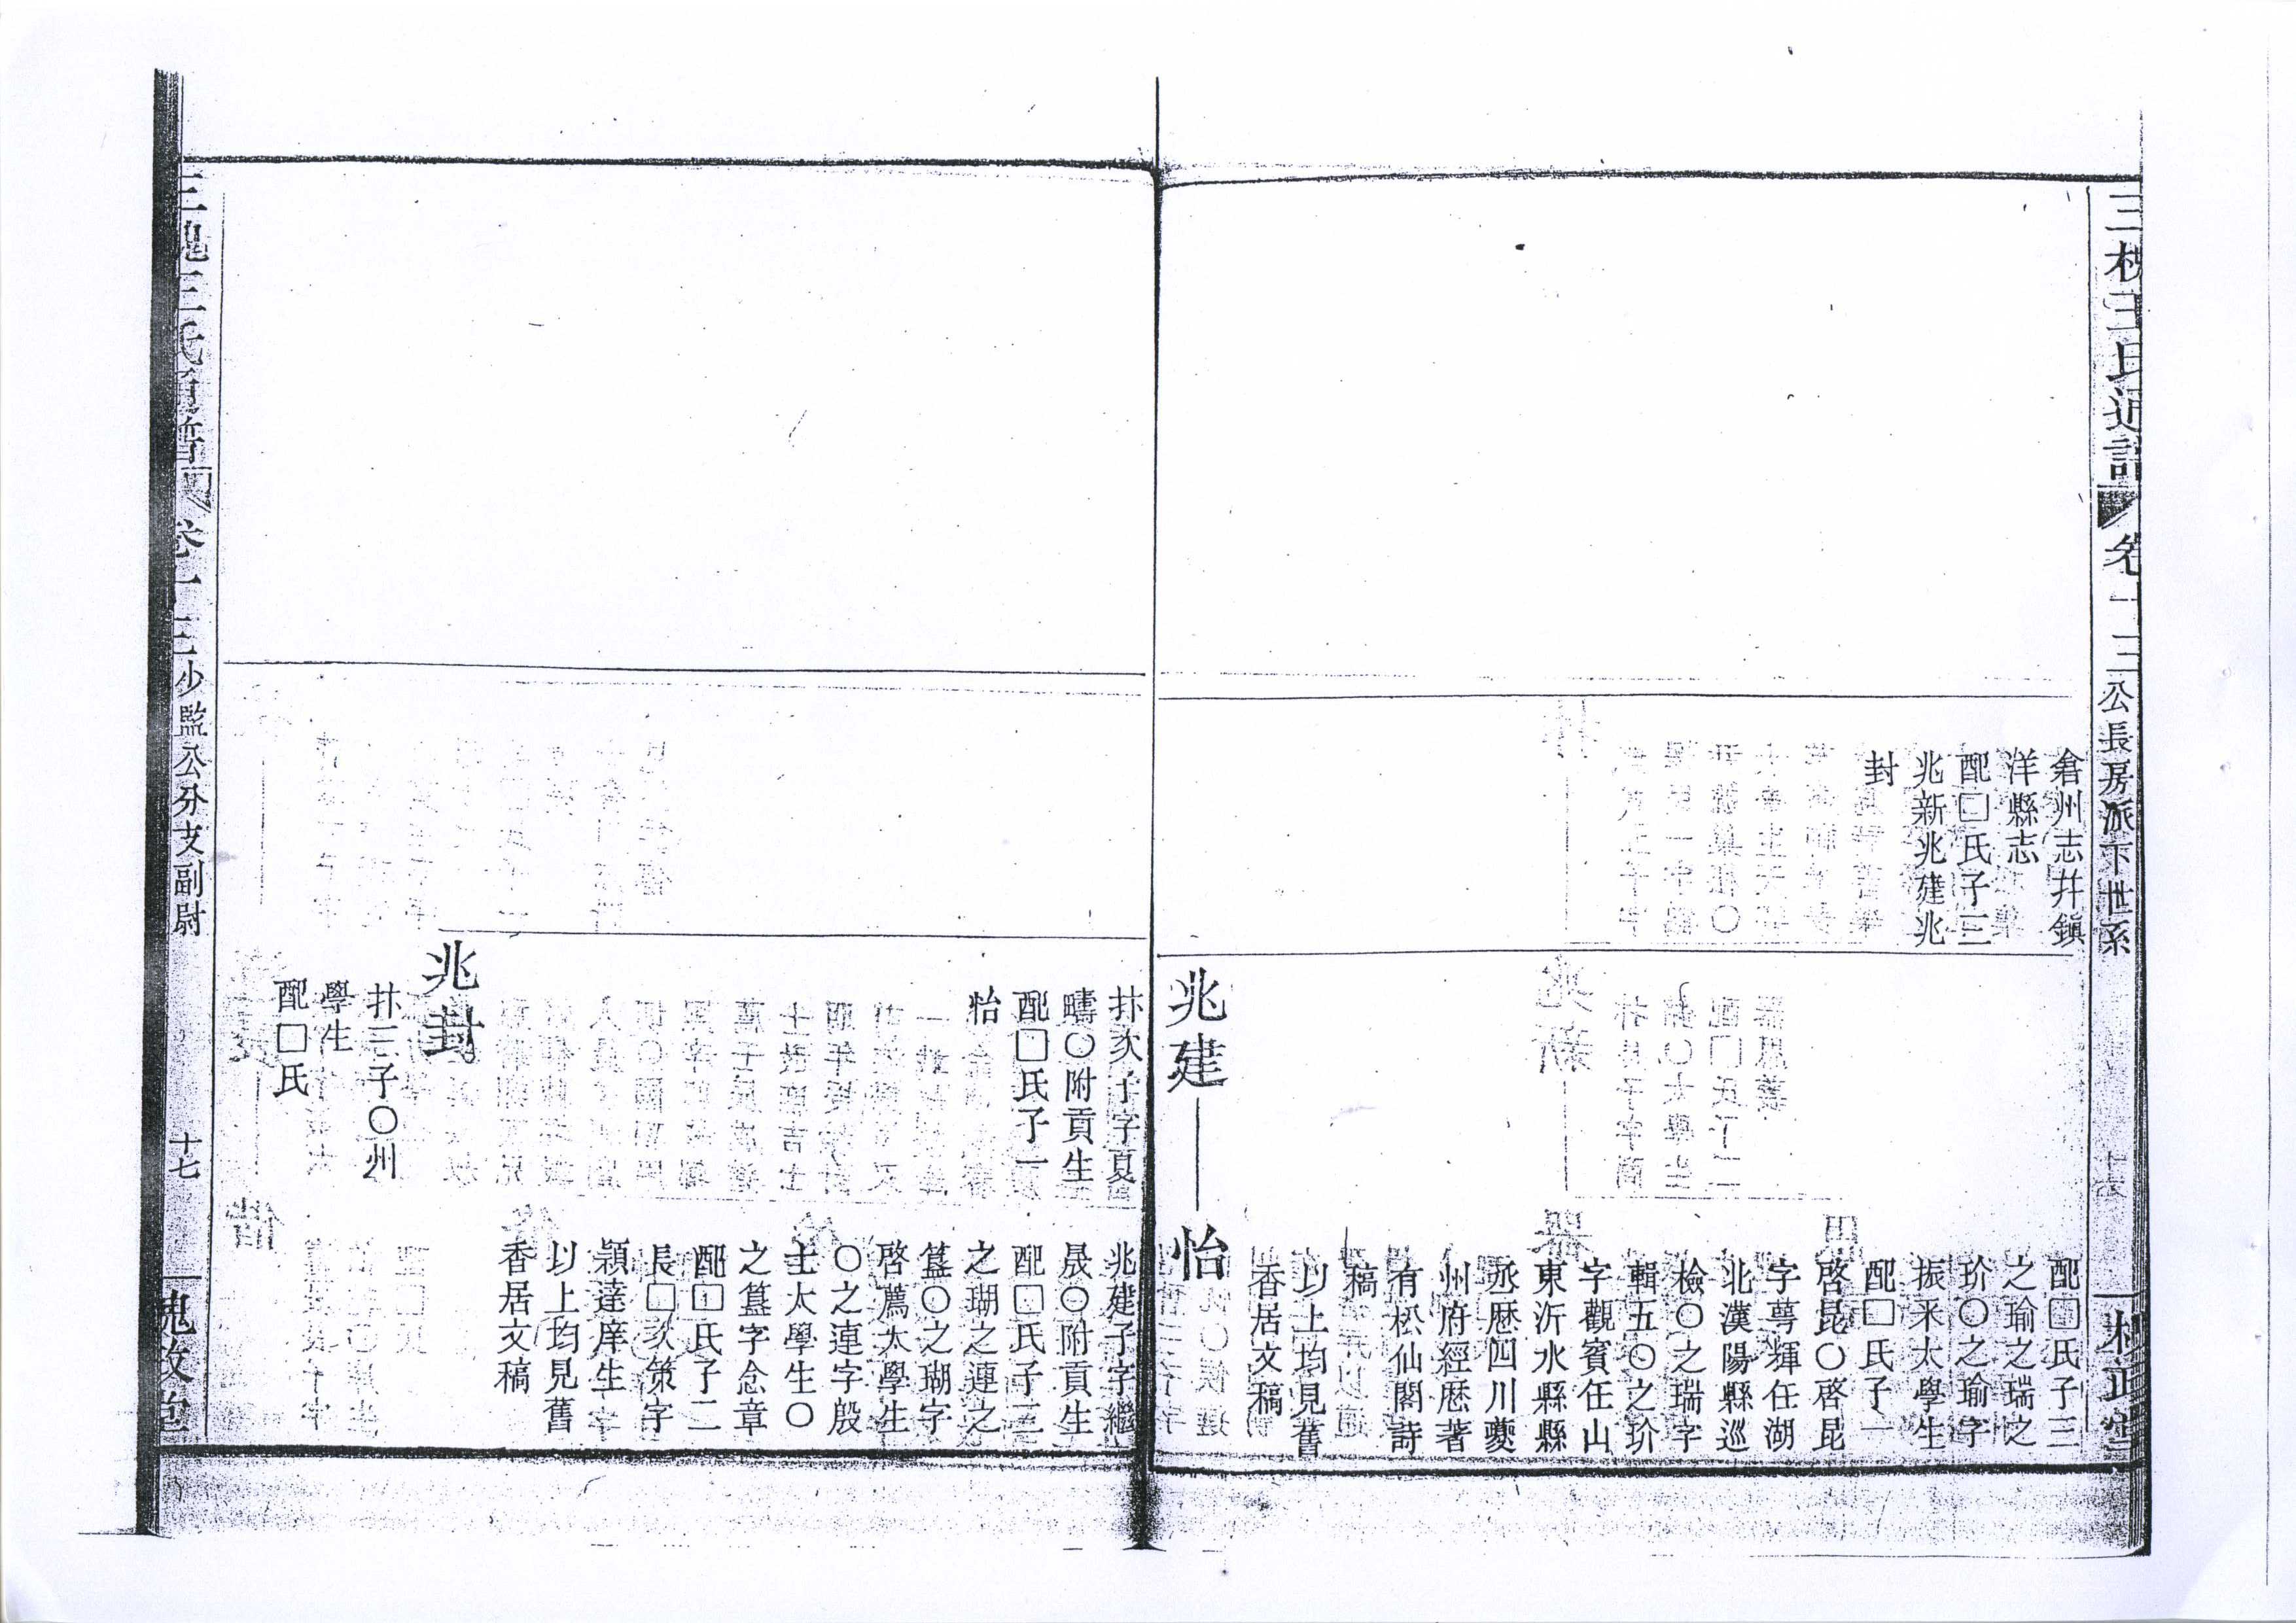 三槐王氏通譜
卷十三
公長房派下世系
倉州志幷鎮
洋縣志
配□氏子三
兆新兆建兆
封
配□氏子三
之瑜之瑞之
玠○之瑜字
振采太學生
配□氏子一
啓昆○啓昆
字萼輝任湖
北漢陽縣巡
檢○之瑞字
輯五○之玠
字觀賓任山
東沂水縣縣
丞歷四川夔
州府經歷著
有松仙閣詩
稿
以上均見舊
香居文稿
兆建
怡
抃次子字夏
疇○附貢生
配□氏子一
怡
兆建子字繼
晟○附貢生
配□氏子三
之瑚之連之
簋○之瑚字
啓薦太學生
○之連字殷
士太學生○
之簋字念章
配□氏子二
長□次策字
穎達庠生
以上均見舊
香居文稿
兆封
抃三子○州
學生
配□氏
三槐王氏通譜
卷十三
少監公分支副尉
十七
槐政堂